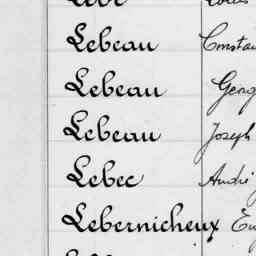 Lebeau Constan
Lebeau Georg
Lebeau Joseph
Lebec André
Lebernicheux Eug